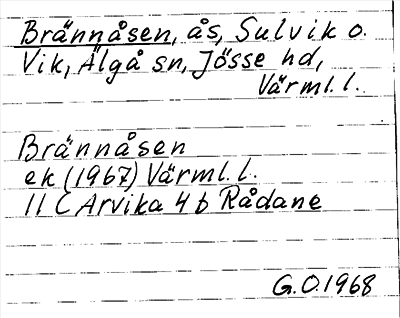 Brännåsen, ås, Sulvik o.
Vik, Älgå sn, Jösse hd,
Värml. l.
Brännåsen
ek (1967) Värml. l.
11 C Arvika 4 b Rådane
G.O. 1968